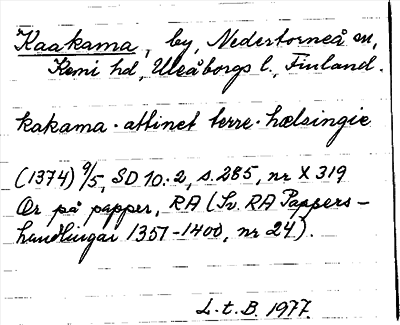 Kaakama, by, Nedertorneå sn,
Kemi hd, Uleåborgs l., Finland.
kakama . attinet terre . hælsingie
(1374) 9/5, SD 10:2, s. 285, nr X 319
Or på papper, RA (Sv. RA Pappers-
handlingar 1351-1400, nr 24).
L.t.B. 1977.